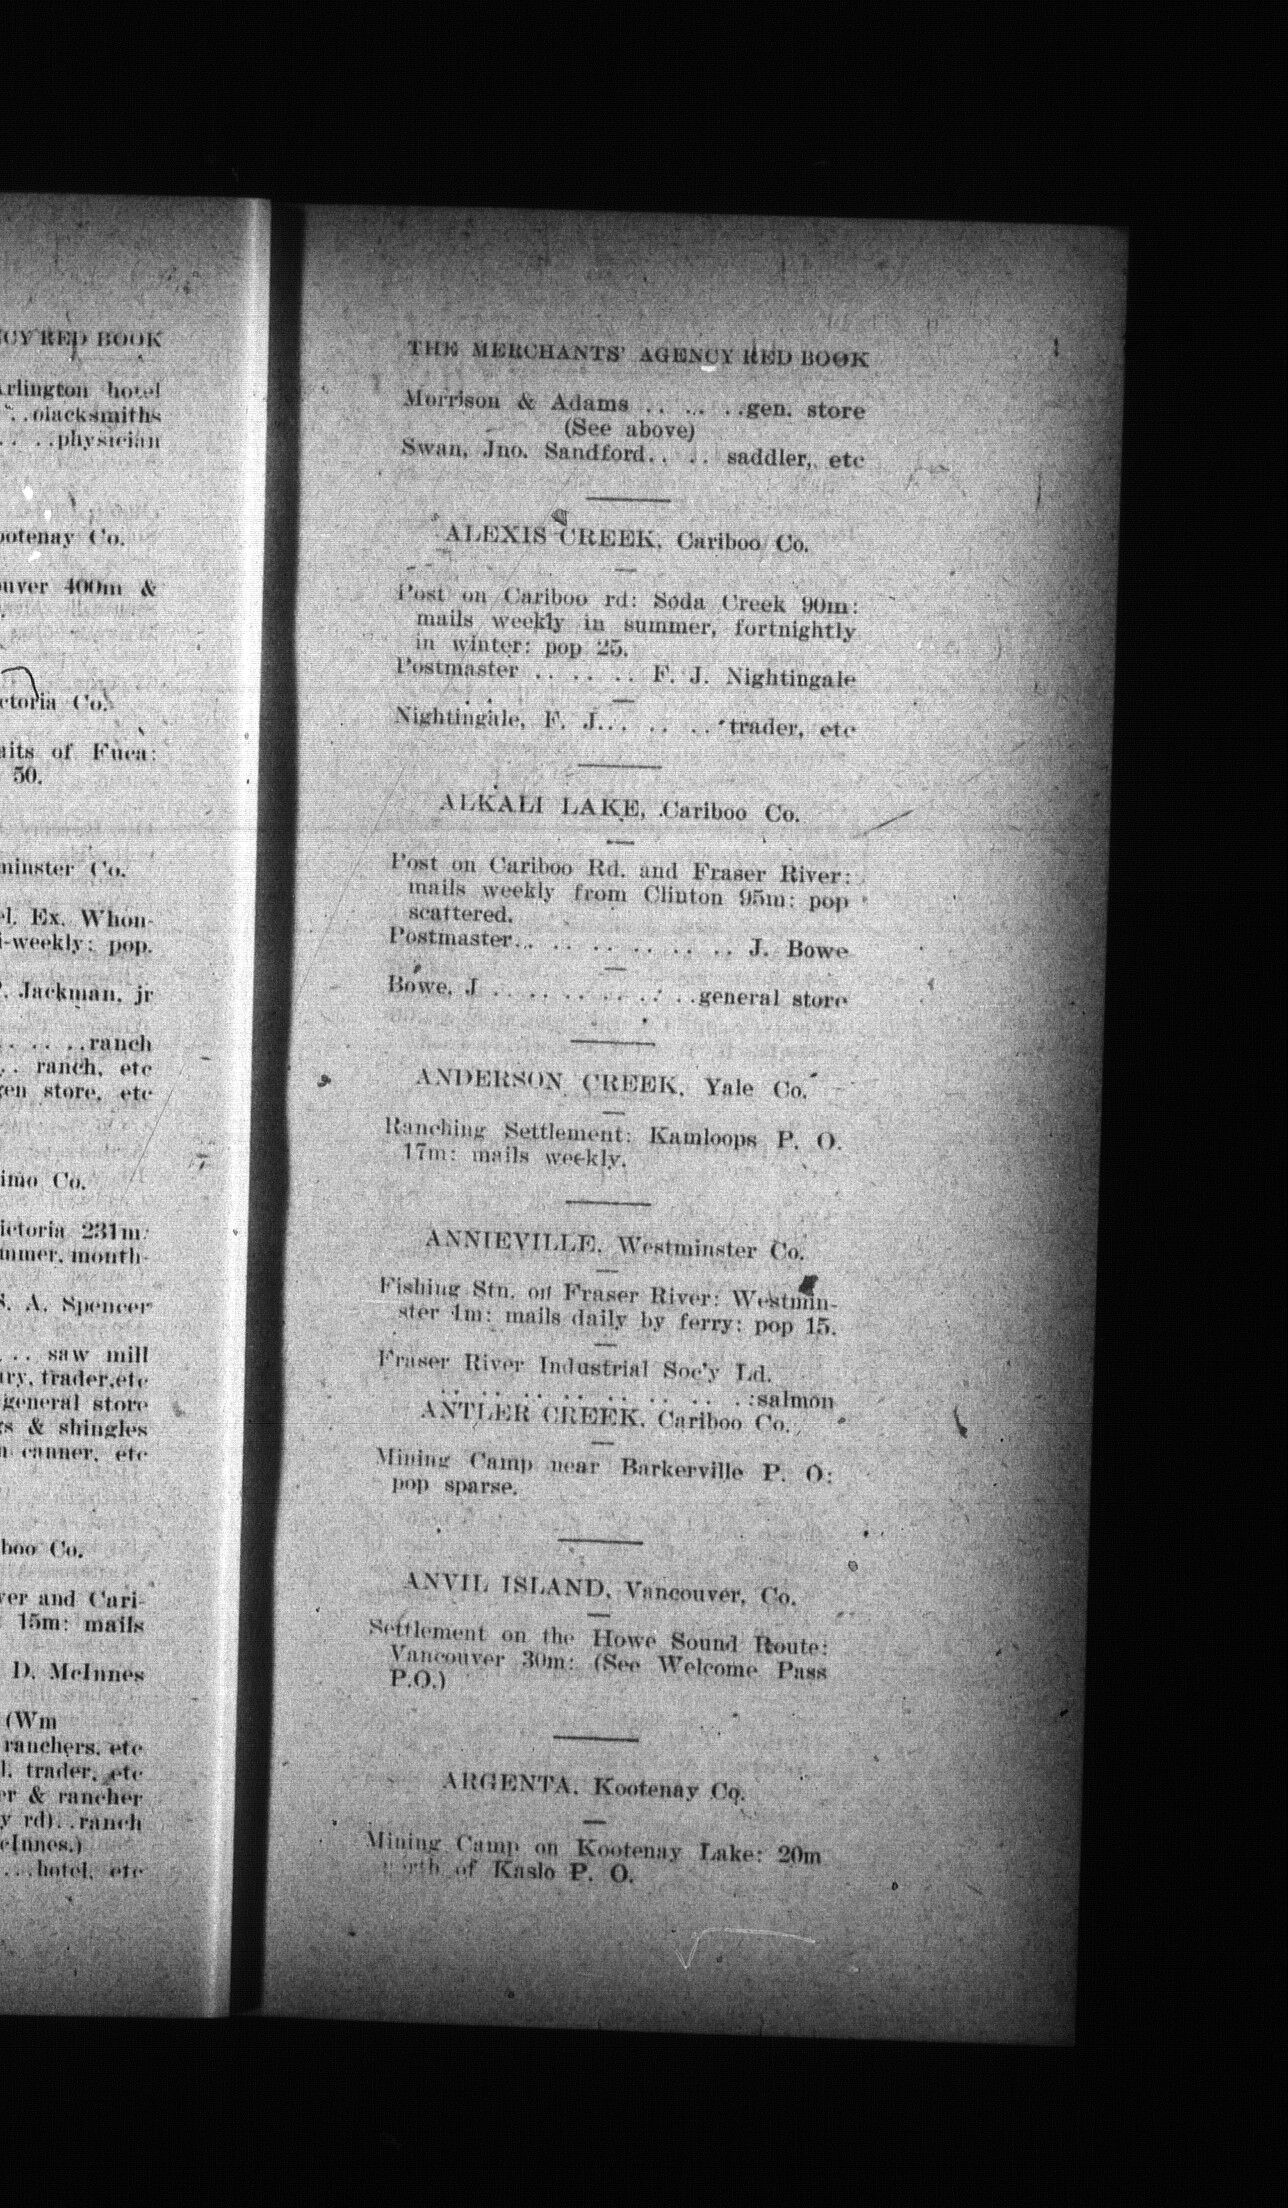 CY RED BOOK
Arlington hotel
..blacksmiths
.. ..physician
ootenay Co.
ouver 400m &
ctoria Co.
aits of Fuca:
50.
minster Co.
el. Ex. Whon-
i-weekly: pop.
P. Jackman, jr
. .. .. ..ranch
.. ranch, etc
gen store, etc
imo Co.
ictoria 231m:
mmer, month-
S. A. Spencer
... saw mill
ary, trader,etc
general store
gs & shingles
n canner, etc
boo Co.
ver and Cari-
15m: mails
D. McInnes
(Wm
ranchers, etc
l, trader, etc
er & rancher
y rd)..ranch
cInnes.)
....hotel, etc
THE MERCHANTS' AGENCY RED BOOK
Morrison & Adams .. .. ..gen. store
(See above)
Swan, Jno. Sandford.. .. saddler, etc
ALEXIS CREEK, Cariboo Co.
Post on Cariboo rd: Soda Creek 90m:
mails weekly in summer, fortnightly
in winter: pop 25.
Postmaster .. .. .. F. J. Nightingale
Nightingale, F. J... .. .. trader, etc
ALKALI LAKE, Cariboo Co.
Post on Cariboo Rd. and Fraser River:
mails weekly from Clinton 95m: pop
scattered.
Postmaster.. .. .. .. .. .. J. Bowe
Bowe, J .. .. .. .. .. ..general store
ANDERSON CREEK, Yale Co.
Ranching Settlement: Kamloops P. O.
17m: mails weekly.
ANNIEVILLE, Westminster Co.
Fishing Stn. on Fraser River: Westmin-
ster 4m: mails daily by ferry: pop 15.
Fraser River Industrial Soc'y Ld.
.. .. .. .. .. .. .. .. .:salmon
ANTLER CREEK, Cariboo Co.
Mining Camp near Barkerville P. O:
pop sparse.
ANVIL ISLAND, Vancouver, Co.
Settlement on the Howe Sound Route:
Vancouver 30m: (See Welcome Pass
P.O.)
ARGENTA, Kootenay Co.
Mining Camp on Kootenay Lake: 20m
north of Kaslo P. O.